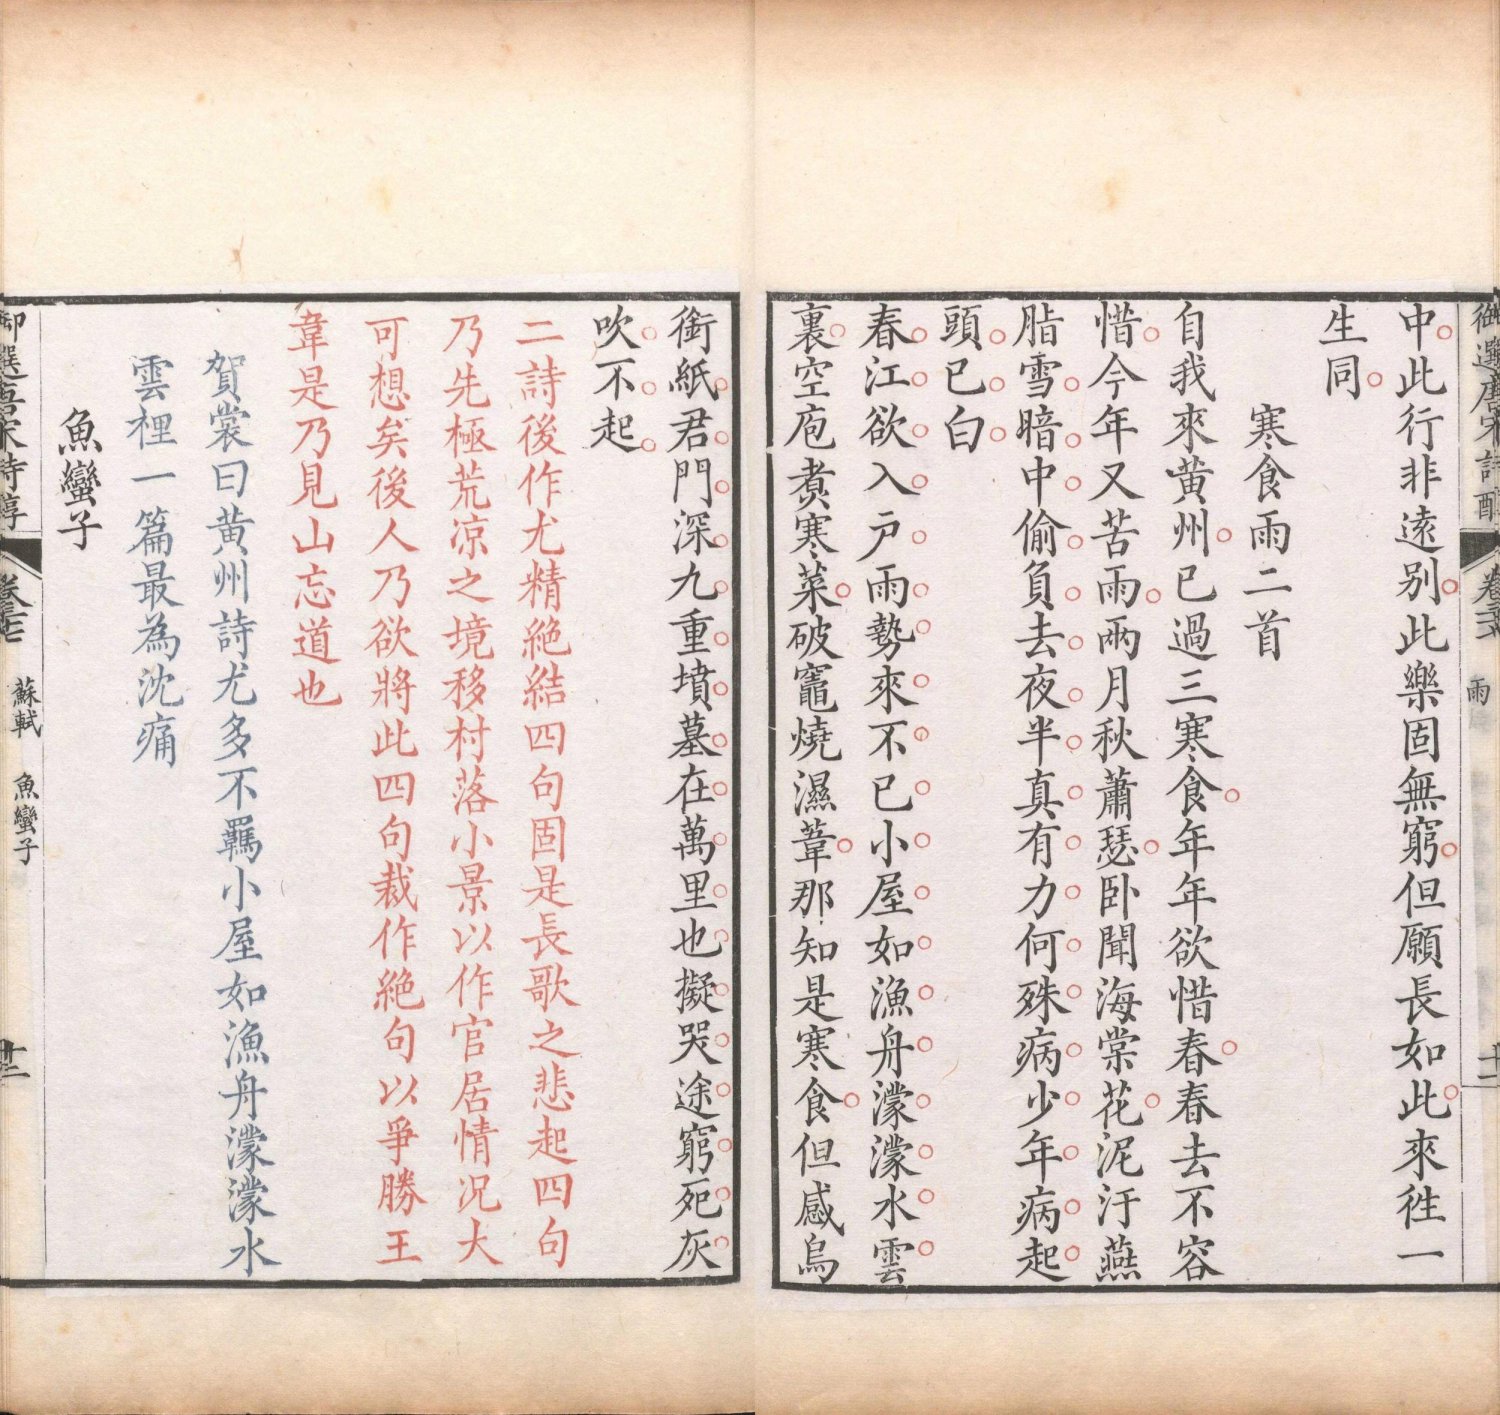 御選唐宋詩醇
卷三十
雨
十二
中此行非遠別此樂固無窮但願長如此來徃一
生同
寒食雨二首
自我來黄州已過三寒食年年欲惜春春去不容
惜今年又苦雨兩月秋蕭瑟卧聞海棠花泥汙燕
脂雪暗中偷負去夜半真有力何殊病少年病起
頭已白
春江欲入戸雨勢來不已小屋如漁舟濛濛水雲
裏空庖煑寒菜破竈燒濕葦那知是寒食但感烏
銜紙君門深九重墳墓在萬里也擬哭途窮死灰
吹不起
二詩後作尤精絶結四句固是長歌之悲起四句
乃先極荒凉之境移村落小景以作官居情况大
可想矣後人乃欲將此四句裁作絶句以爭勝王
韋是乃見山忘道也
賀裳曰黄州詩尤多不羈小屋如漁舟濛濛水
雲裡一篇最為沈痛
魚蠻子
御選唐宋詩醇
蘇軾
魚蠻子
十二